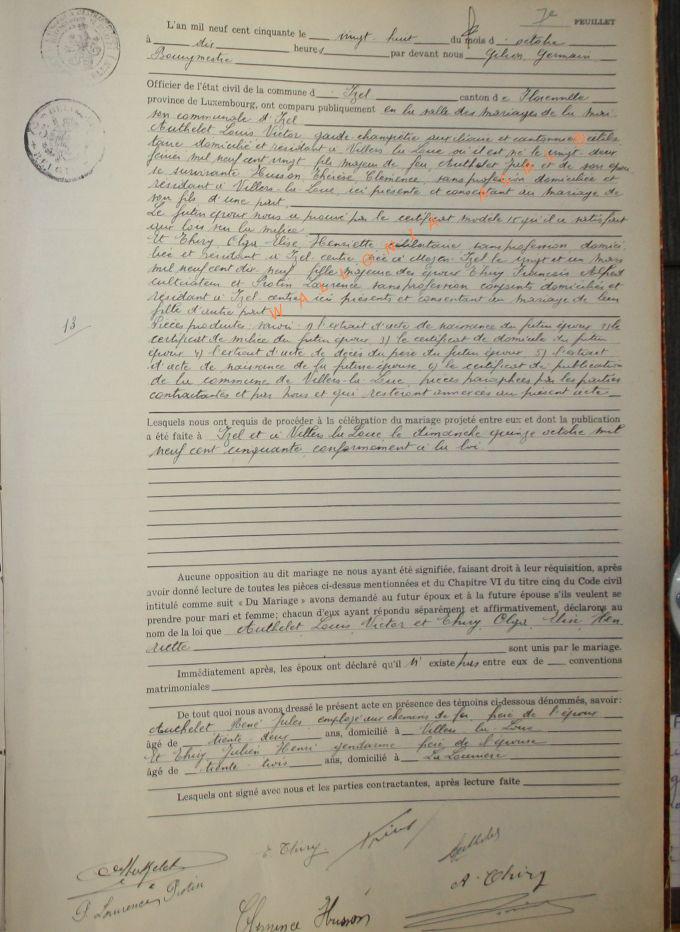 7e FEUILLET
L'an mil neuf cent cinquante le vingt-huit du mois d octobre
à dix heures par devant nous Gilson Germain
Bourgmestre
Officier de l'état civil de la commune d Izel canton de Florenville
province de Luxembourg, ont comparu publiquement en la salle des mariages de la mai
son communale d'Izel
Authelet Louis Victor garde champêtre auxiliaire et cantonnier céliba
taire domicilié et résidant à Villers la Loue où il est né le vingt-deux
février mil neuf cent vingt fils majeur de feu Authelet Jules et de son épou
se survivante Husson Thérèse Clémence, sans profession domiciliée et
résidant à Villers-la-Loue, ici présente et consentant au mariage de
son fils d'une part
Le futur époux nous a prouvé par le certificat modèle 15 qu'il a satisfait
aux lois sur la milice
Et Thiry Olga Elise Henriette célibataire, sans profession, domici
liée et résidant à Izel centre, née à Moyen-Izel le vingt et un mars
mil neuf cent dix neuf fille majeure des époux Thiry François Alfred
cultivateur et Protin Laurence sans profession conjoints domiciliés et
résidant à Izel centre ici présents et consentant au mariage de leur
fille d'autre part
WALLONIA
13
Pièces produites: savoir: 1) l'extrait d'acte de naissance du futur époux 2) le
certificat de milice du futur époux 3) le certificat de domicile du futur
époux 4) l'extrait d'acte de décès du père du futur époux 5) l'extrait
d'acte de naissance de la future épouse 6) le certificat de publication
de la commune de Villers-la-Loue, pièces paraphées par les parties
contractantes et par nous et qui resteront annexées au présent acte
Lesquels nous ont requis de procéder à la célébration du mariage projeté entre eux et dont la publication
a été faite à Izel et à Villers la Loue le dimanche quinze octobre mil
neuf cent cinquante conformément à la loi
Aucune opposition au dit mariage ne nous ayant été signifiée, faisant droit à leur réquisition, après
avoir donné lecture de toutes les pièces ci-dessus mentionnées et du Chapitre VI du titre cinq du Code civil
intitulé comme suit « Du Mariage » avons demandé au futur époux et à la future épouse s'ils veulent se
prendre pour mari et femme; chacun d'eux ayant répondu séparément et affirmativement, déclarons au
nom de la loi que Authelet Louis Victor et Thiry Olga Elise Hen
riette sont unis par le mariage.
Immédiatement après, les époux ont déclaré qu'il n' existe pas entre eux de conventions
matrimoniales
De tout quoi nous avons dressé le présent acte en présence des témoins ci-dessous dénommés, savoir:
Authelet René Jules employé aux chemins de fer frère de l'époux
âgé de trente deux ans, domicilié à Villers la Loue
Et Thiry Julien Henri gendarme frère de l'épouse
âgé de trente trois ans, domicilié à La Louvière
Lesquels ont signé avec nous et les parties contractantes, après lecture faite
Authelet
E. Thiry
Authelet
P. Laurence Protin
A. Thiry
Clémence Husson